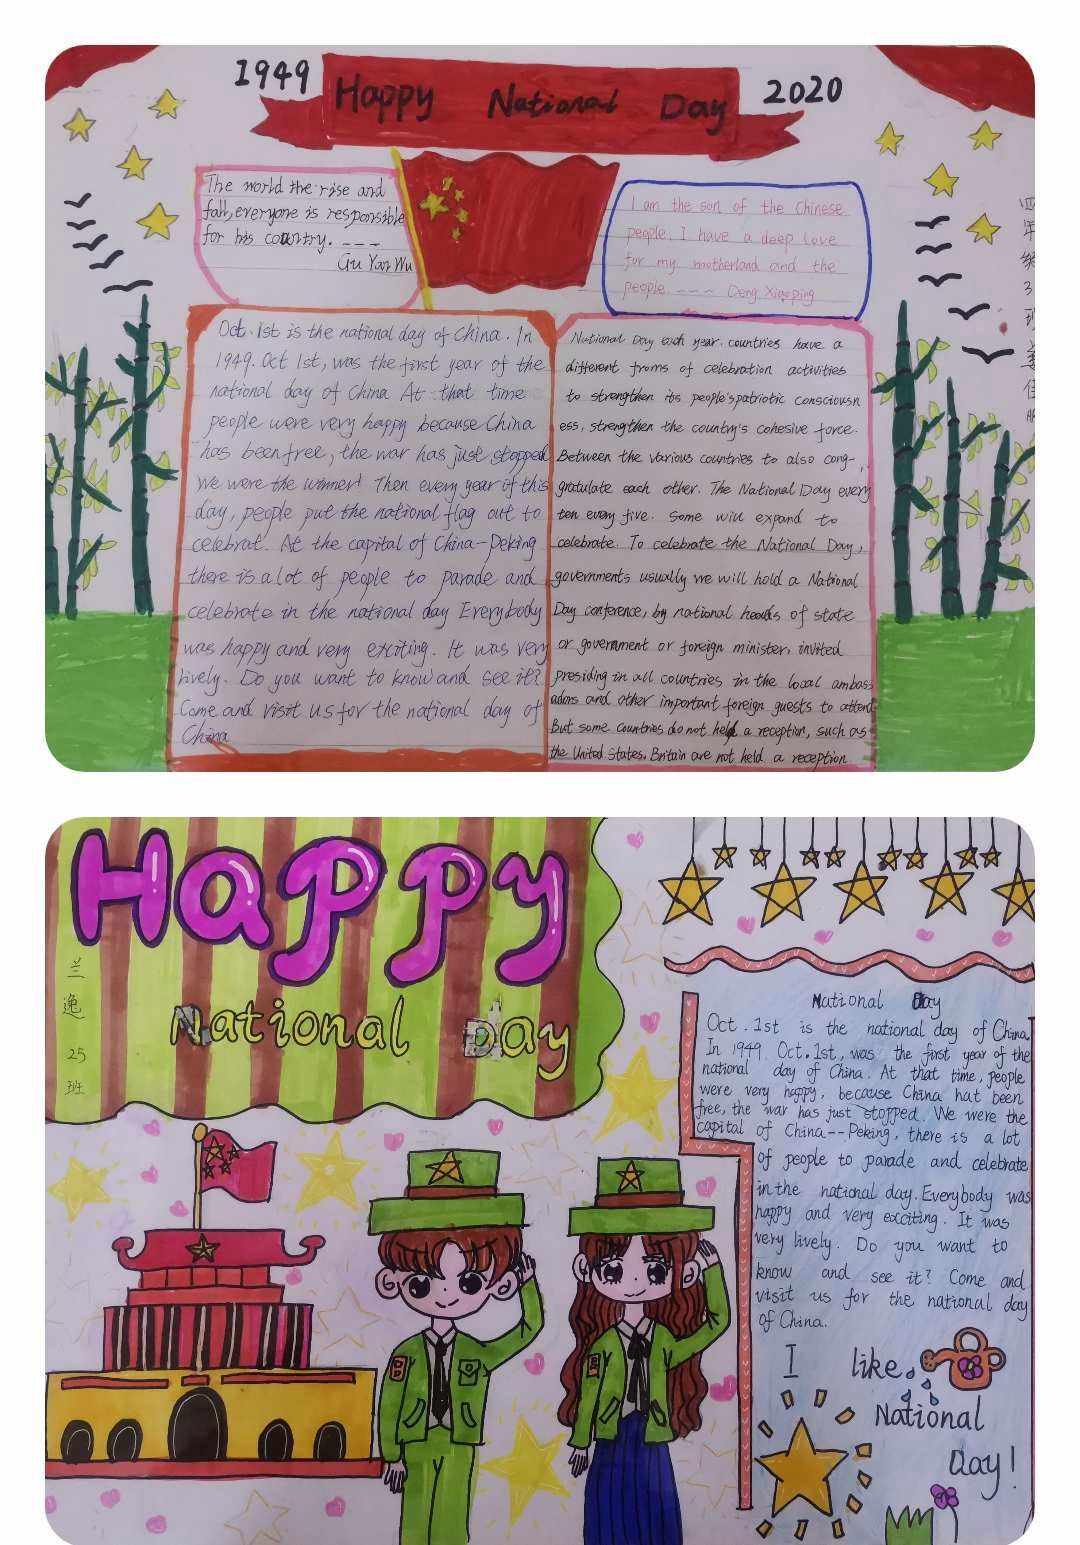 1949
Happy National Day
2020
The world the rise and
fall, everyone is responsible
for his country. ----
Gu Yan Wu
I am the son of the Chinese
people. I have a deep love
for my motherland and the
people ---- Deng Xiaoping
Oct. 1st is the national day of China. In
1949. Oct 1st, was the first year of the
national day of China At that time
people were very happy because China
has been free, the war has just stopped
We were the winner! Then every year of this
day, people put the national flag out to
celebrat. At the capital of China-Peking
there is a lot of people to parade and
celebrate in the national day Everybody
was happy and very exciting. It was very
lively. Do you want to know and see it?
Come and visit us for the national day of
China
National Day each year. countries have a
different froms of celebration activities
to strengthen its people's patriotic consciousn
ess, strengthen the country's cohesive force.
Between the various countries to also cong-
gratulate each other. The National Day every
ten every five. Some will expand to
celebrate. To celebrate the National Day,
governments usually we will hold a National
Day conference, by national heads of state
or government or foreign minister, invited
presiding in all countries in the local ambas
adors and other important foreign guests to attend
But some countries do not held a reception, such as
the United States. Britain are not held a reception
3
Happy
National Day
兰
逸
25
班
National Day
Oct. 1st is the national day of China.
In 1949. Oct. 1st, was the first year of the
national day of China. At that time, people
were very happy, because China hat been
free, the war has just stopped. We were the
capital of China--Peking, there is a lot
of people to parade and celebrate
in the national day. Everybody was
happy and very exciting. It was
very lively. Do you want to
know and see it? Come and
visit us for the national day
of China..
I like
National
Day!